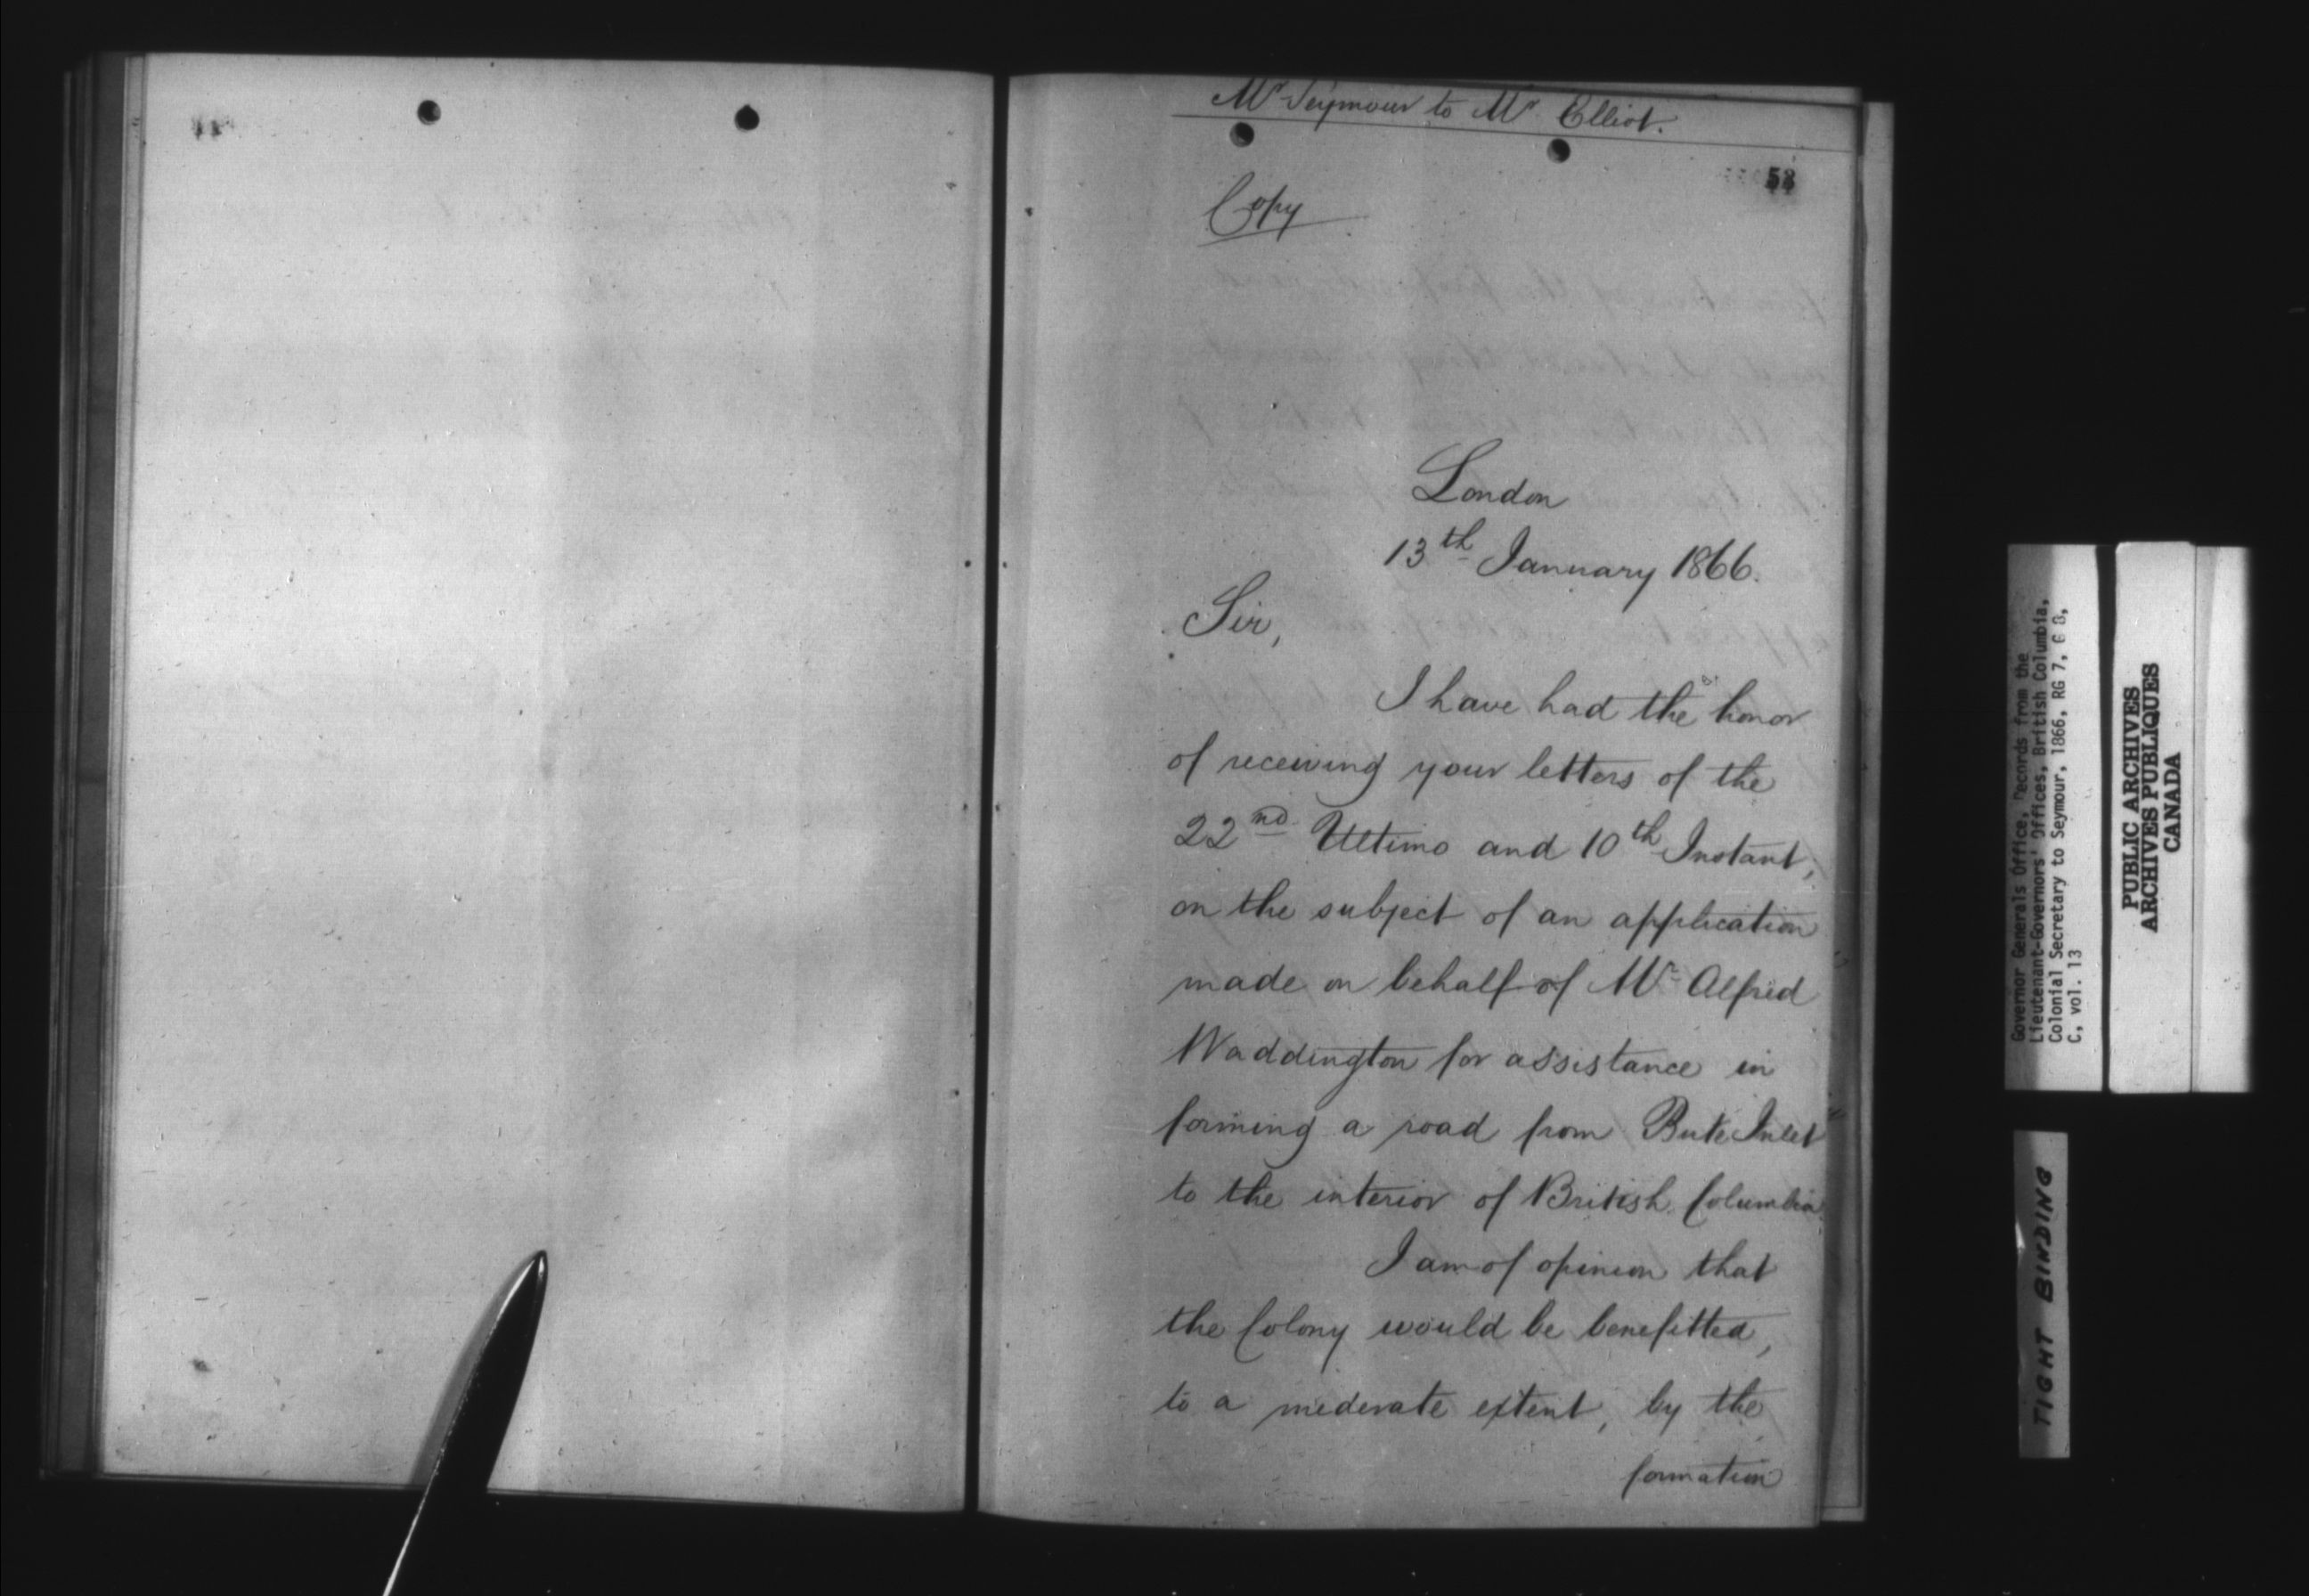 Mr Seymour to Mr Elliot.
Copy
London
13th January 1866.
Sir,
I have had the honor
of receiving your letters of the
22nd Ultimo and 10th Instant,
on the subject of an application
made on behalf of Mr Alfred
Waddington for assistance in
forming a road from Bute Inlet
to the interior of British Columbia.
I am of opinion that
the Colony would be benefitted,
to a moderate extent, by the
formation
Governor Generals Office, Records from the
Lieutenant-Governors' Offices, British Columbia,
Colonial Secretary to Seymour, 1866, RG 7, G 8,
C, vol. 13
PUBLIC ARCHIVES
ARCHIVES PUBLIQUES
CANADA
TIGHT BINDING